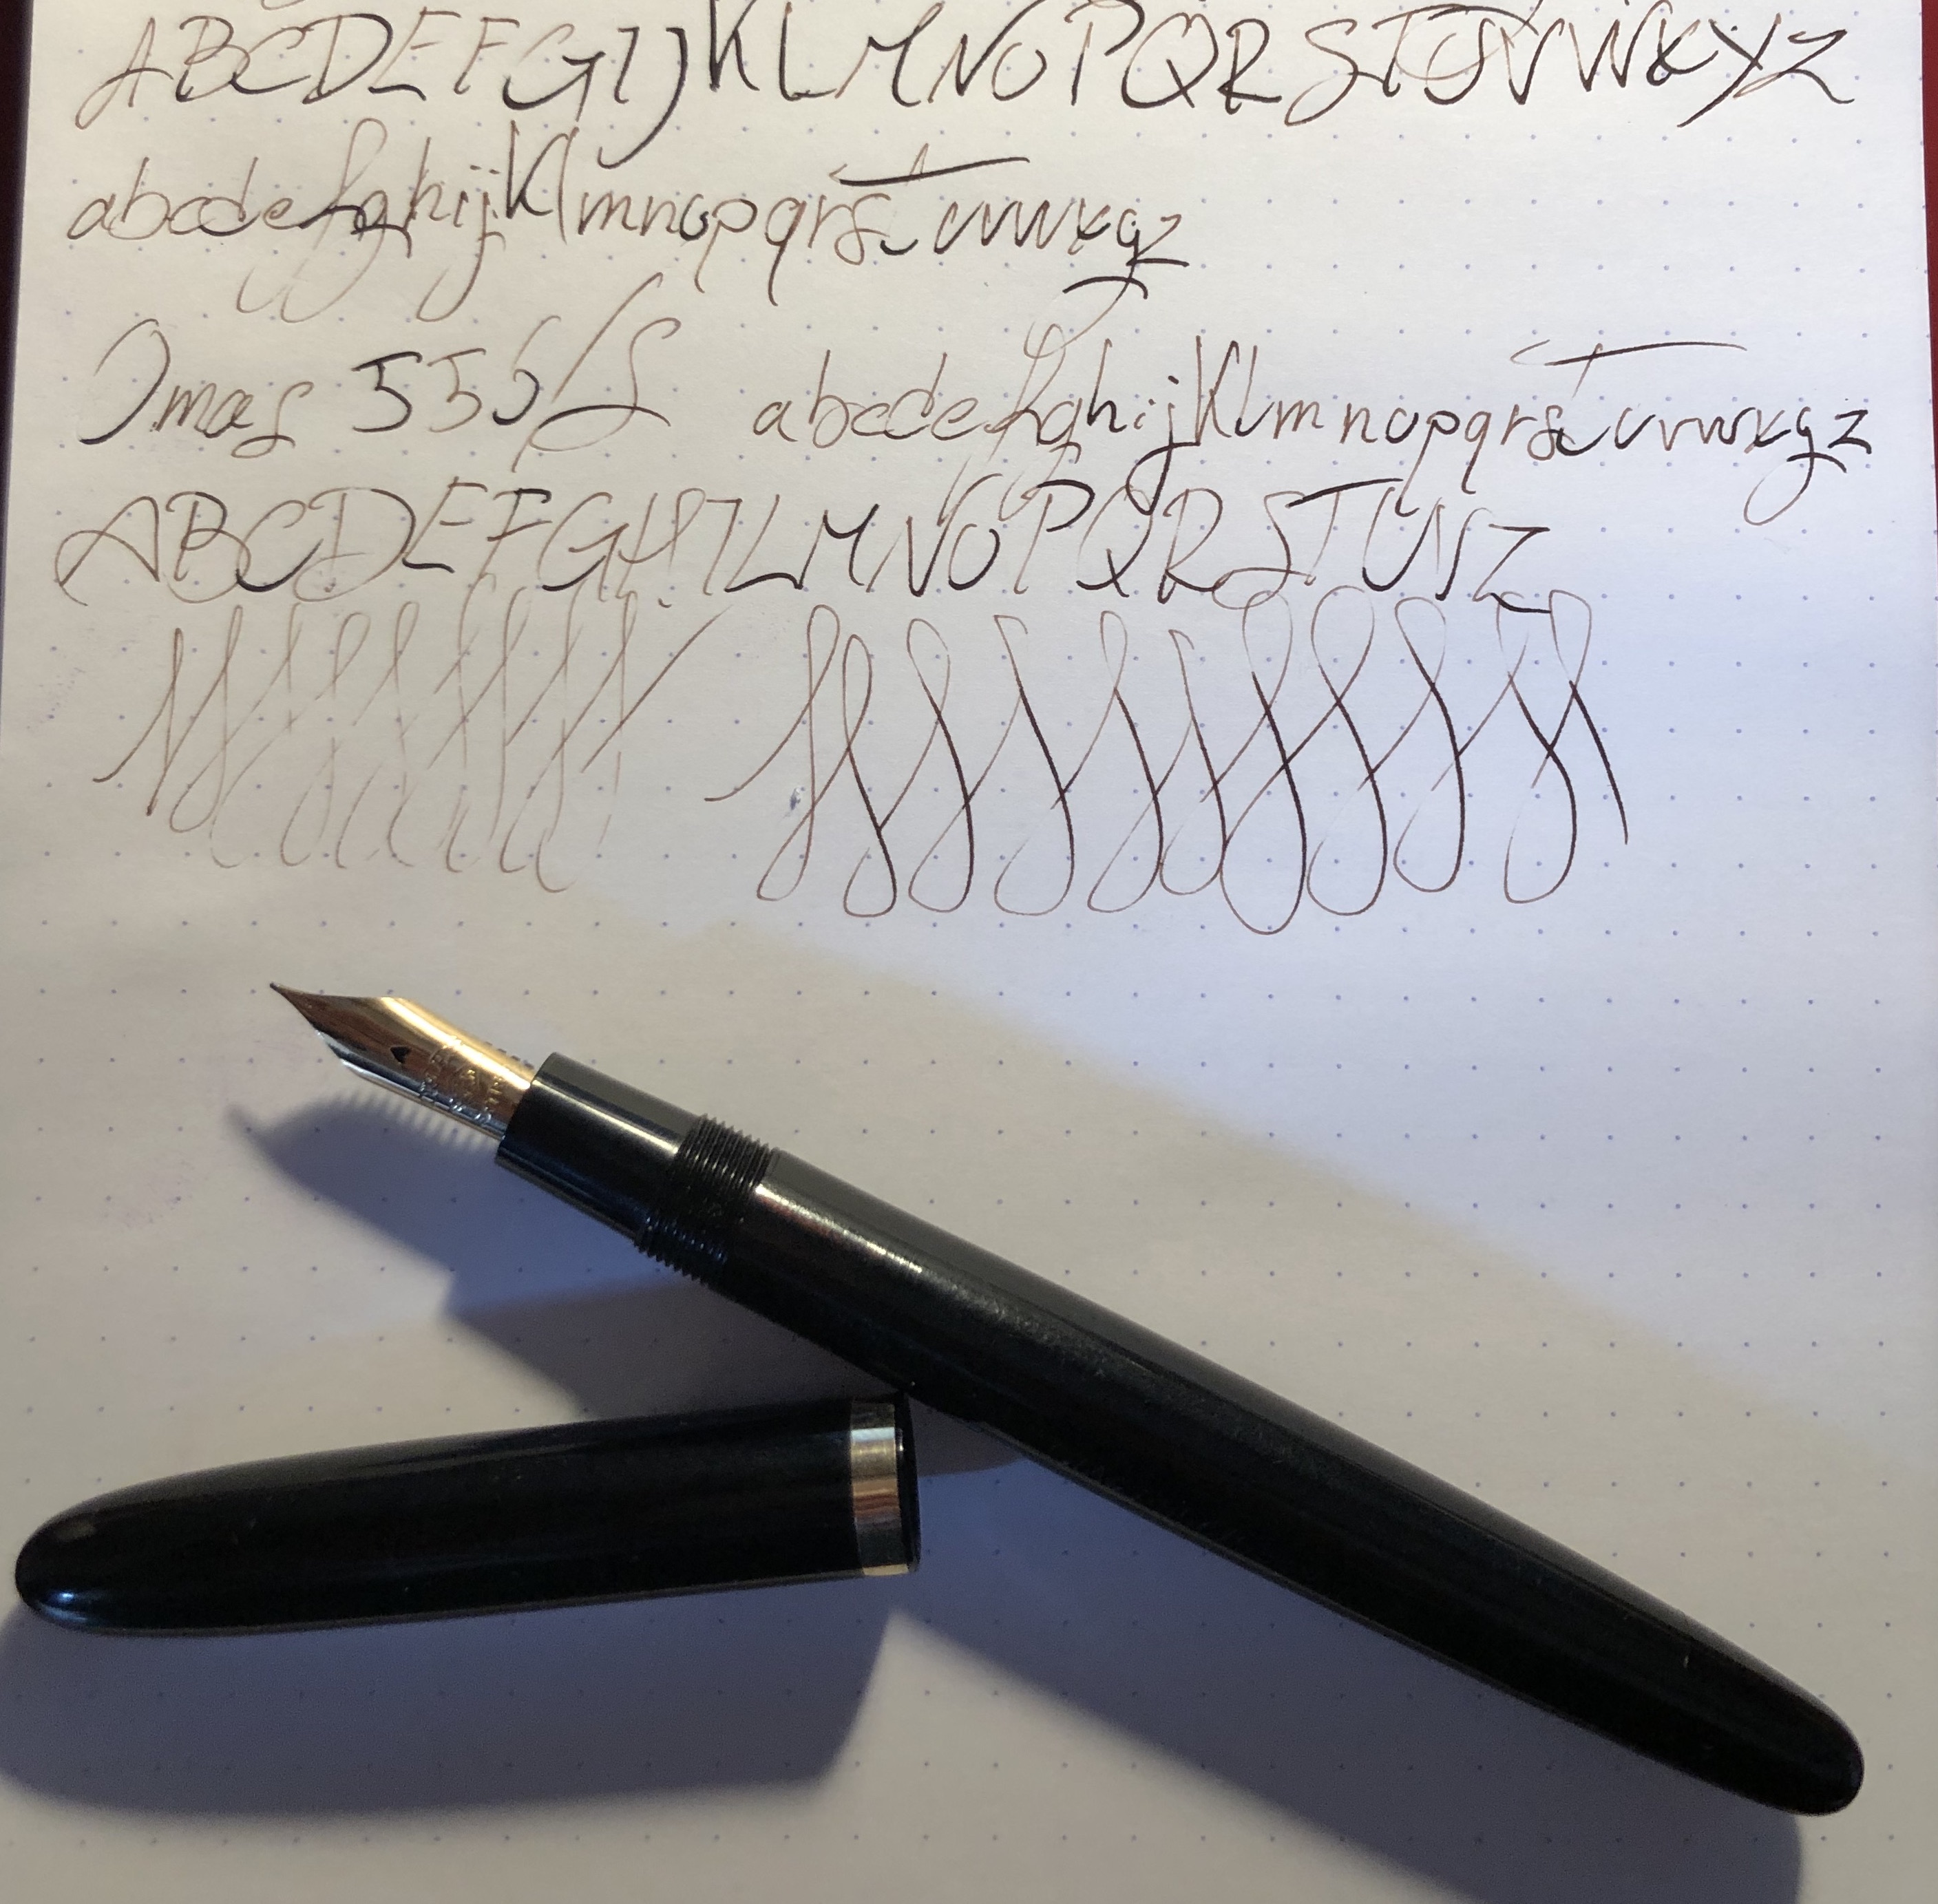 ABCDEFGIJKLMNOPQRSTUVWXYZ
abcdefghijklmnopqrstuvwxyz
Omas 556/S abcdefghijklmnopqrstuvwxyz
ABCDEFGHILMNOPQRSTUVZ